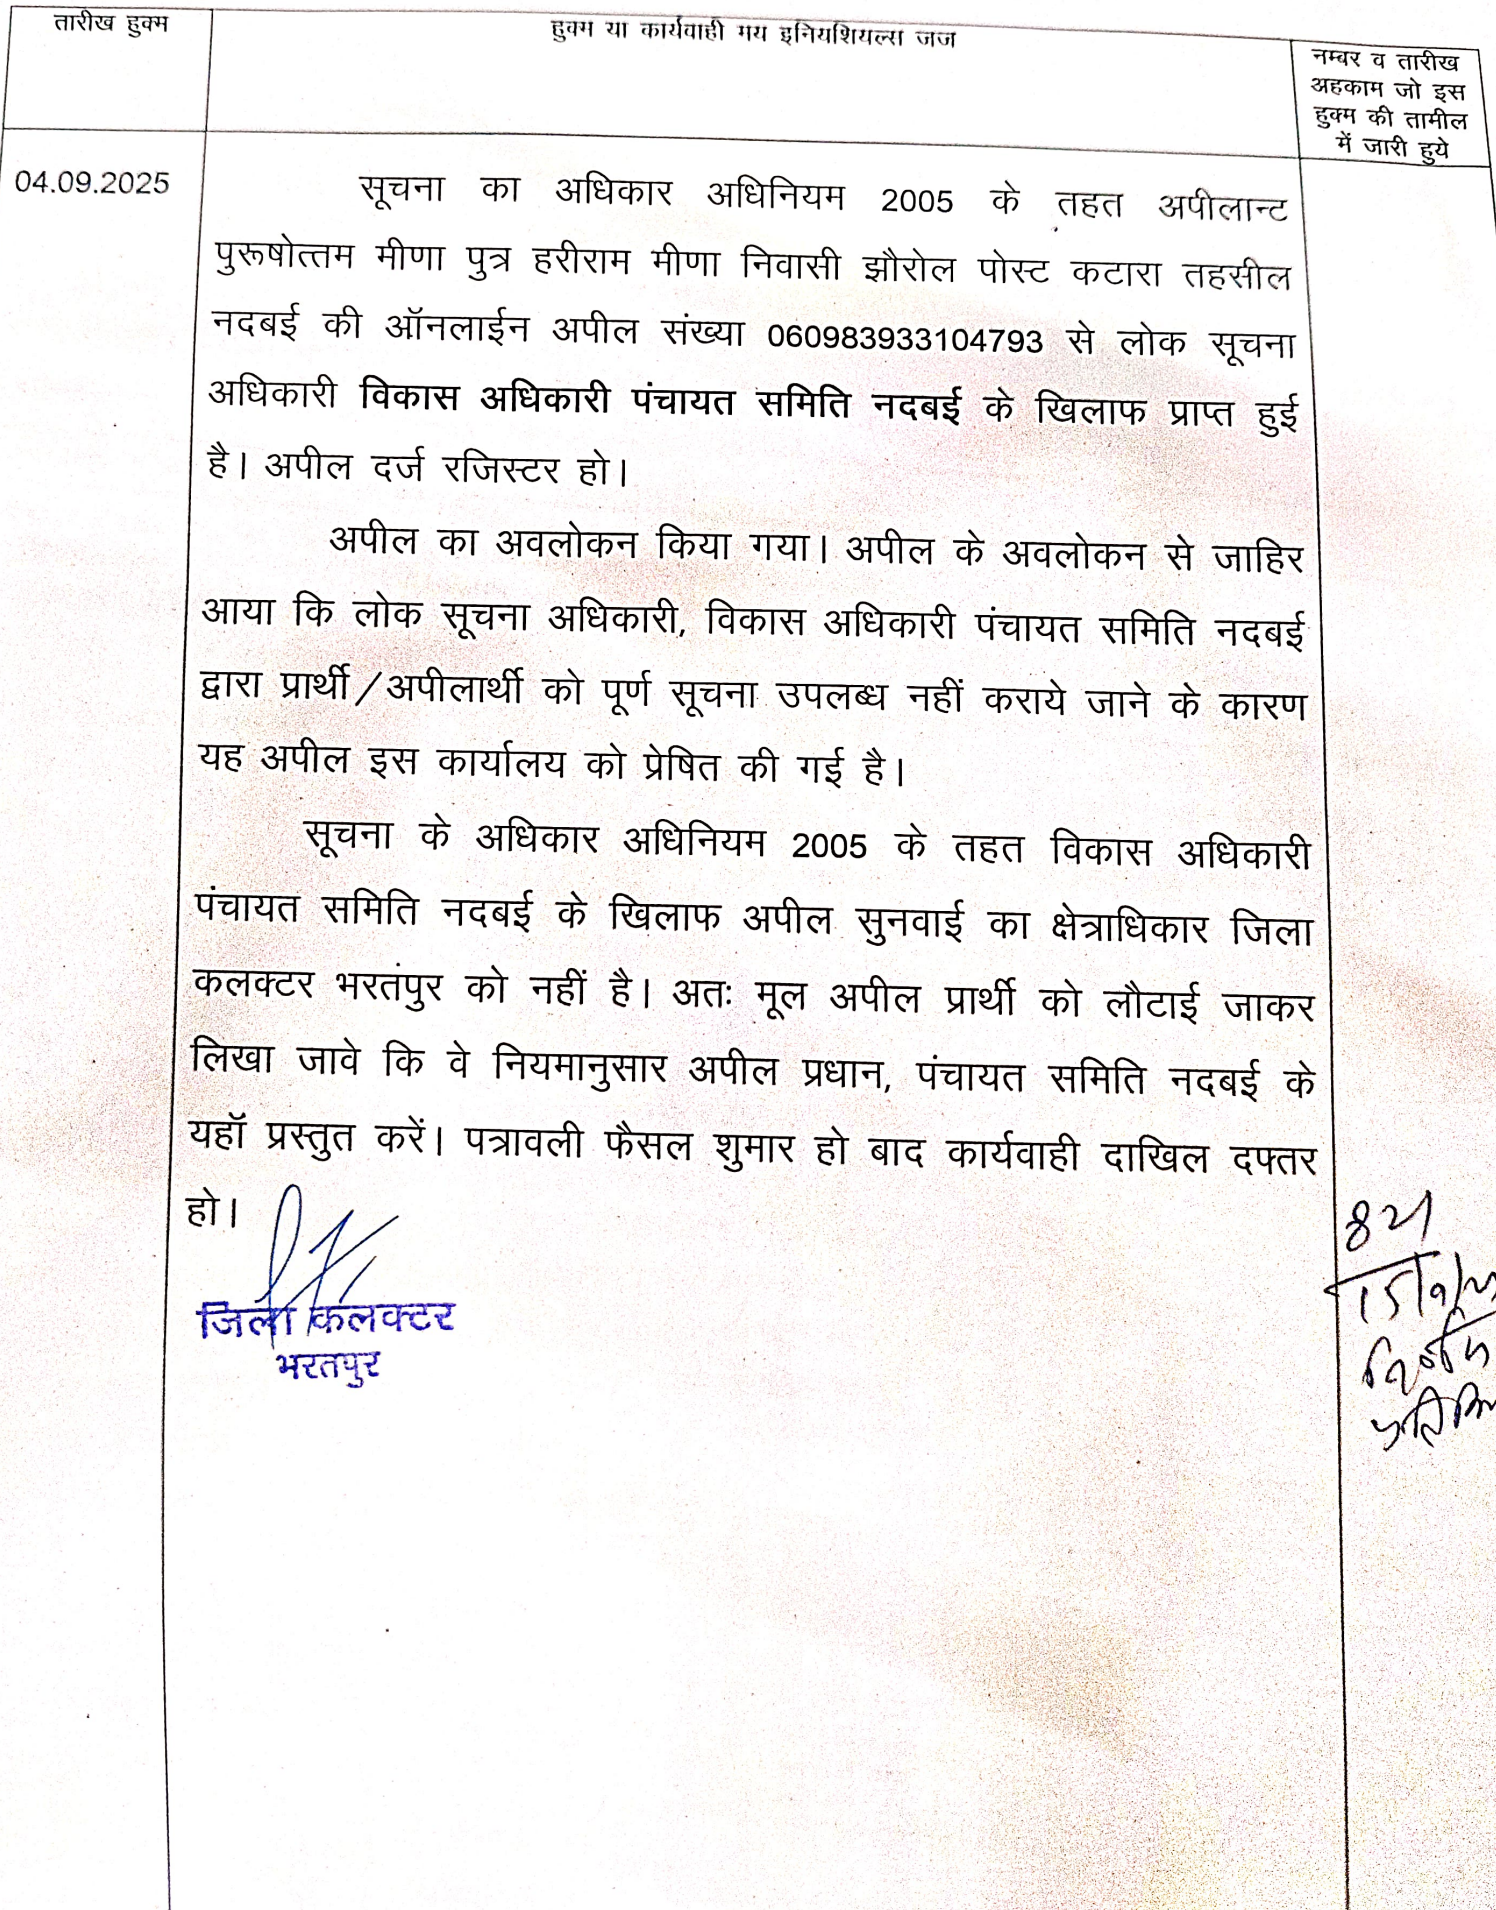 तारीख हुक्म
हुक्म या कार्यवाही मय इनियशियल्स जज
नम्बर व तारीख
अहकाम जो इस
हुक्म की तामील
में जारी हुये
04.09.2025
सूचना का अधिकार अधिनियम 2005 के तहत अपीलान्ट
पुरूषोत्तम मीणा पुत्र हरीराम मीणा निवासी झौरोल पोस्ट कटारा तहसील
नदबई की ऑनलाईन अपील संख्या 060983933104793 से लोक सूचना
अधिकारी विकास अधिकारी पंचायत समिति नदबई के खिलाफ प्राप्त हुई
है। अपील दर्ज रजिस्टर हो।
अपील का अवलोकन किया गया। अपील के अवलोकन से जाहिर
आया कि लोक सूचना अधिकारी, विकास अधिकारी पंचायत समिति नदबई
द्वारा प्रार्थी/अपीलार्थी को पूर्ण सूचना उपलब्ध नहीं कराये जाने के कारण
यह अपील इस कार्यालय को प्रेषित की गई है।
सूचना के अधिकार अधिनियम 2005 के तहत विकास अधिकारी
पंचायत समिति नदबई के खिलाफ अपील सुनवाई का क्षेत्राधिकार जिला
कलक्टर भरतपुर को नहीं है। अतः मूल अपील प्रार्थी को लौटाई जाकर
लिखा जावे कि वे नियमानुसार अपील प्रधान, पंचायत समिति नदबई के
यहॉ प्रस्तुत करें। पत्रावली फैसल शुमार हो बाद कार्यवाही दाखिल दफ्तर
हो।
जिला कलक्टर
भरतपुर